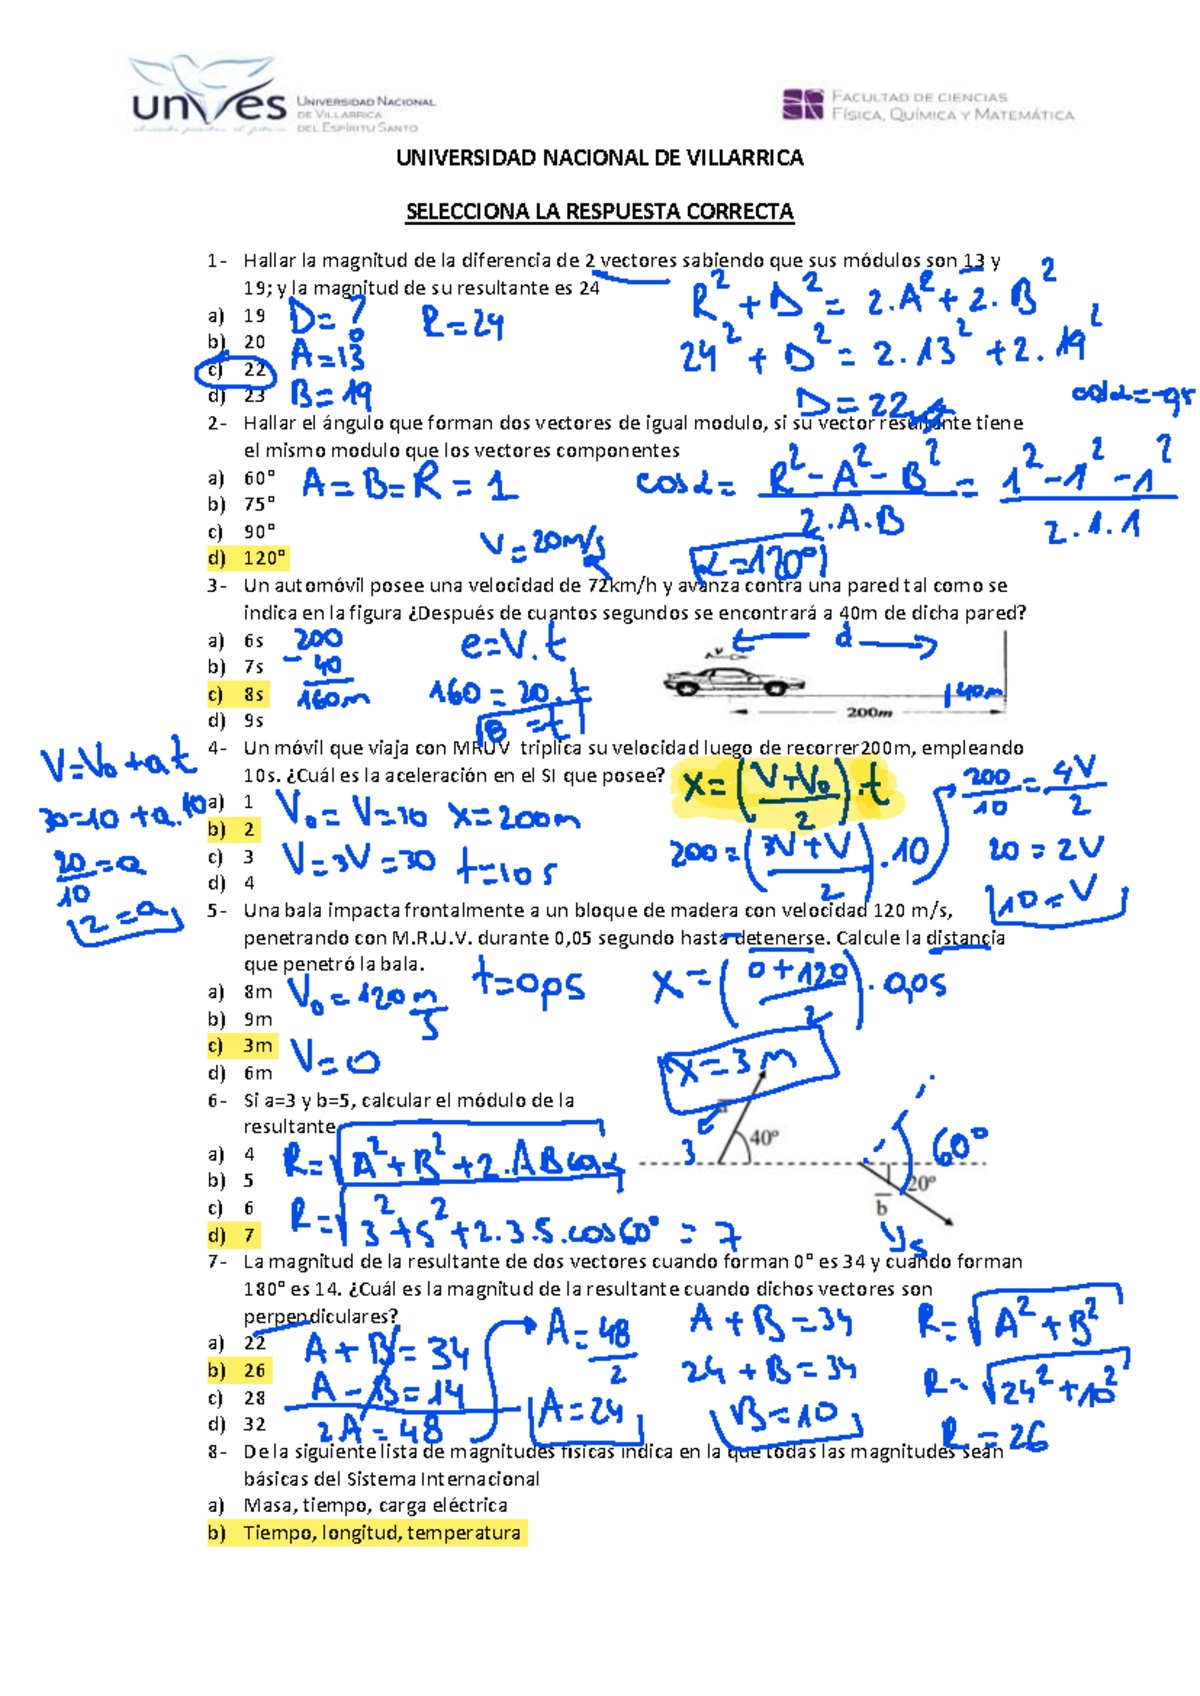 unves
UNIVERSIDAD NACIONAL
DE VILLARRICA
DEL ESPÍRITU SANTO
FACULTAD DE CIENCIAS
FÍSICA, QUÍMICA Y MATEMÁTICA
UNIVERSIDAD NACIONAL DE VILLARRICA
SELECCIONA LA RESPUESTA CORRECTA
1- Hallar la magnitud de la diferencia de 2 vectores sabiendo que sus módulos son 13 y
19; y la magnitud de su resultante es 24
a) 19
b) 20
c) 22
d) 23
D=?
A=13
B=19
R=24
R²+D²=2.A²+2.B²
24²+D²=2.13²+2.19²
D=22
2- Hallar el ángulo que forman dos vectores de igual modulo, si su vector resultante tiene
el mismo modulo que los vectores componentes
a) 60°
b) 75°
c) 90°
d) 120°
A=B=R=1
cosα= R²-A²-B² / 2.A.B = 1²-1²-1² / 2.1.1
α=120°
V=20m/s
3- Un automóvil posee una velocidad de 72km/h y avanza contra una pared tal como se
indica en la figura ¿Después de cuantos segundos se encontrará a 40m de dicha pared?
a) 6s
b) 7s
c) 8s
d) 9s
200
- 40
160m
e=V.t
160=20.t
8=t
d
V
40m
200m
4- Un móvil que viaja con MRUV triplica su velocidad luego de recorrer200m, empleando
10s. ¿Cuál es la aceleración en el SI que posee?
a) 1
b) 2
c) 3
d) 4
V=V₀+a.t
30=10+a.10
20/10=a
2=a
V₀=V=10 x=200m
V=3V=30 t=10s
x=(V+V₀/2).t
200=(3V+V/2).10
200/10=4V/2
20=2V
10=V
5- Una bala impacta frontalmente a un bloque de madera con velocidad 120 m/s,
penetrando con M.R.U.V. durante 0,05 segundo hasta detenerse. Calcule la distancia
que penetró la bala.
a) 8m
b) 9m
c) 3m
d) 6m
V₀=120m/s
V=0
t=0,05
x=(0+120/2).0,05
x=3m
6- Si a=3 y b=5, calcular el módulo de la
resultante
a) 4
b) 5
c) 6
d) 7
R=√A²+B²+2.ABcosα
R=√3²+5²+2.3.5.cos60°=7
a
3
40°
60°
20°
b
5
7- La magnitud de la resultante de dos vectores cuando forman 0° es 34 y cuando forman
180° es 14. ¿Cuál es la magnitud de la resultante cuando dichos vectores son
perpendiculares?
a) 22
b) 26
c) 28
d) 32
A+B=34
A-B=14
2A=48
A=48/2
A=24
A+B=34
24+B=34
B=10
R=√A²+B²
R=√24²+10²
R=26
8- De la siguiente lista de magnitudes físicas indica en la que todas las magnitudes sean
básicas del Sistema Internacional
a) Masa, tiempo, carga eléctrica
b) Tiempo, longitud, temperatura